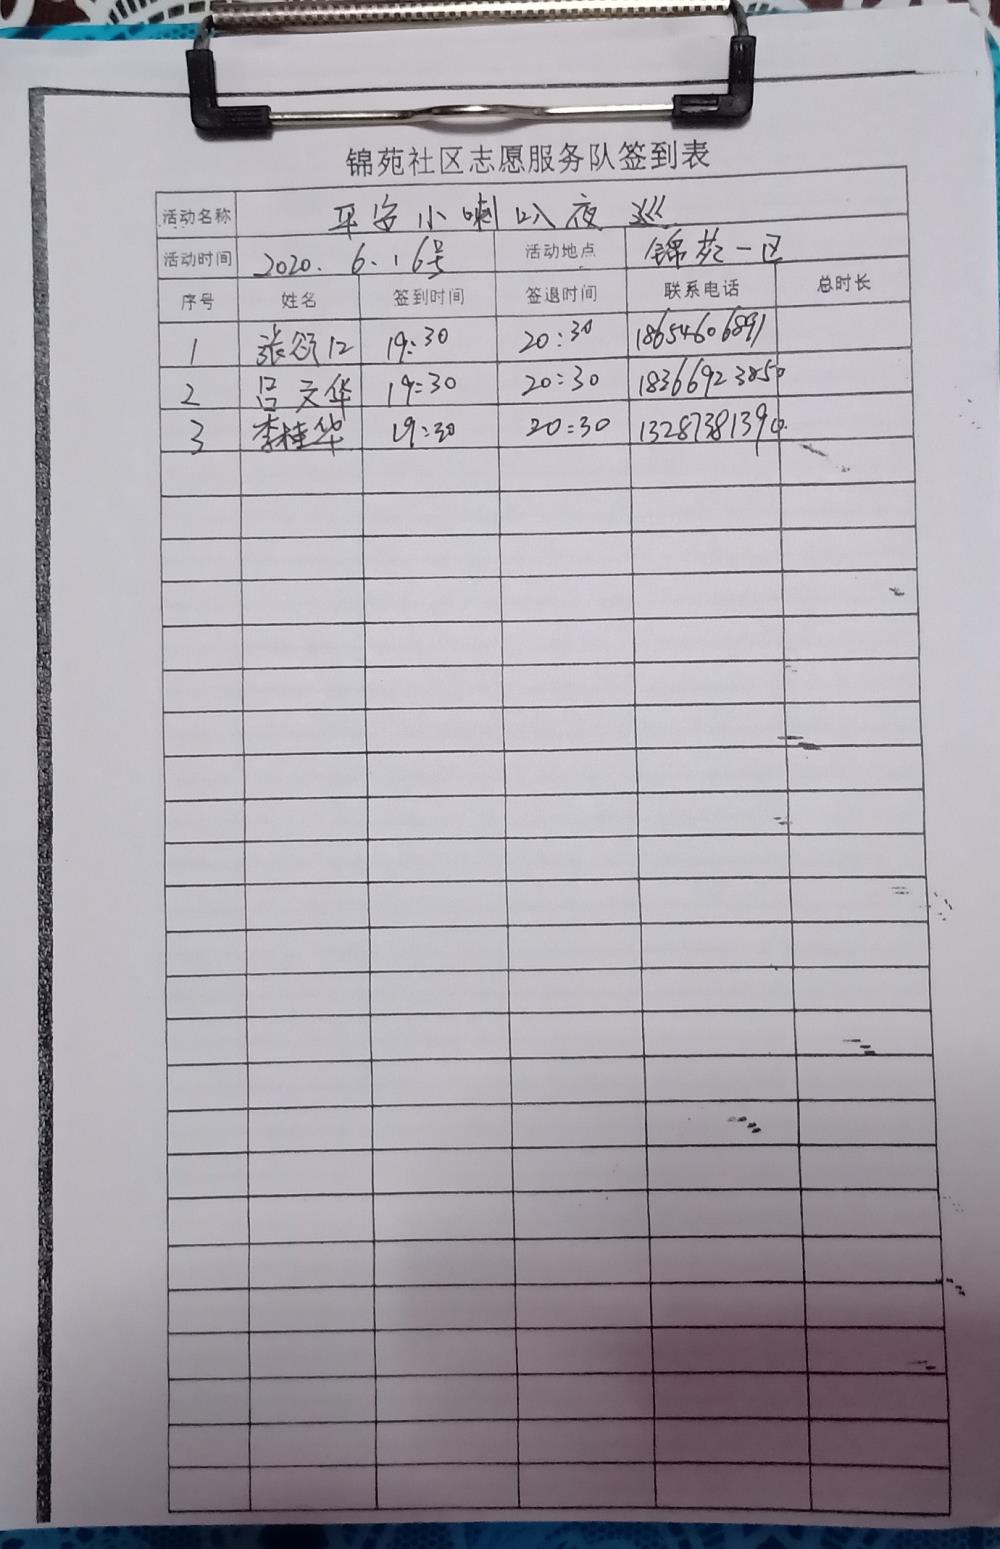 锦苑社区志愿服务队签到表
活动名称 平安小喇叭夜巡
活动时间 2020.6.16号 活动地点 锦苑一区
序号 姓名 签到时间 签退时间 联系电话 总时长
1 张颂江 19:30 20:30 18654606891
2 吕文华 19:30 20:30 18366923850
3 李桂华 19:30 20:30 13287381390